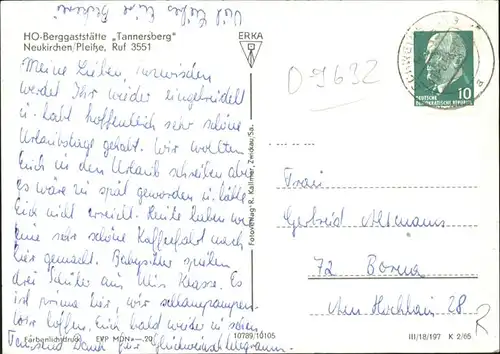 Viel Liebes Eure
HO-Berggaststätte „Tannersberg"
Neukirchen/Pleiße, Ruf 3551
ERKA
D 9632
10
DEUTSCHE
DEMOKRATISCHE REPUBLIK
Meine Lieben, inzwischen
werdet Ihr wieder eingetrudelt
u. habt hoffentlich sehr schöne
Urlaubstage gehabt. Wir wollten
Euch in den Urlaub schreiben aber
es wäre zu spät geworden u. hätte
Euch nicht erreicht. Heute haben wir
eine sehr schöne Kaffeefahrt nach
hier gemacht. Babysitter spielen
drei Schüler aus Klasse. Es
ist prima hier, wir
Wir hoffen, Euch bald wieder zu sehen
Tausend Dank für Glückwunschtelegramm.
Fotoverlag R. Kallmer, Zwickau/Sa.
Frau
72 Borna
Am Hochhain 28
R
Farbenlichtdruck
EVP MDN -,20
10789/10105
III/18/197 K 2/65